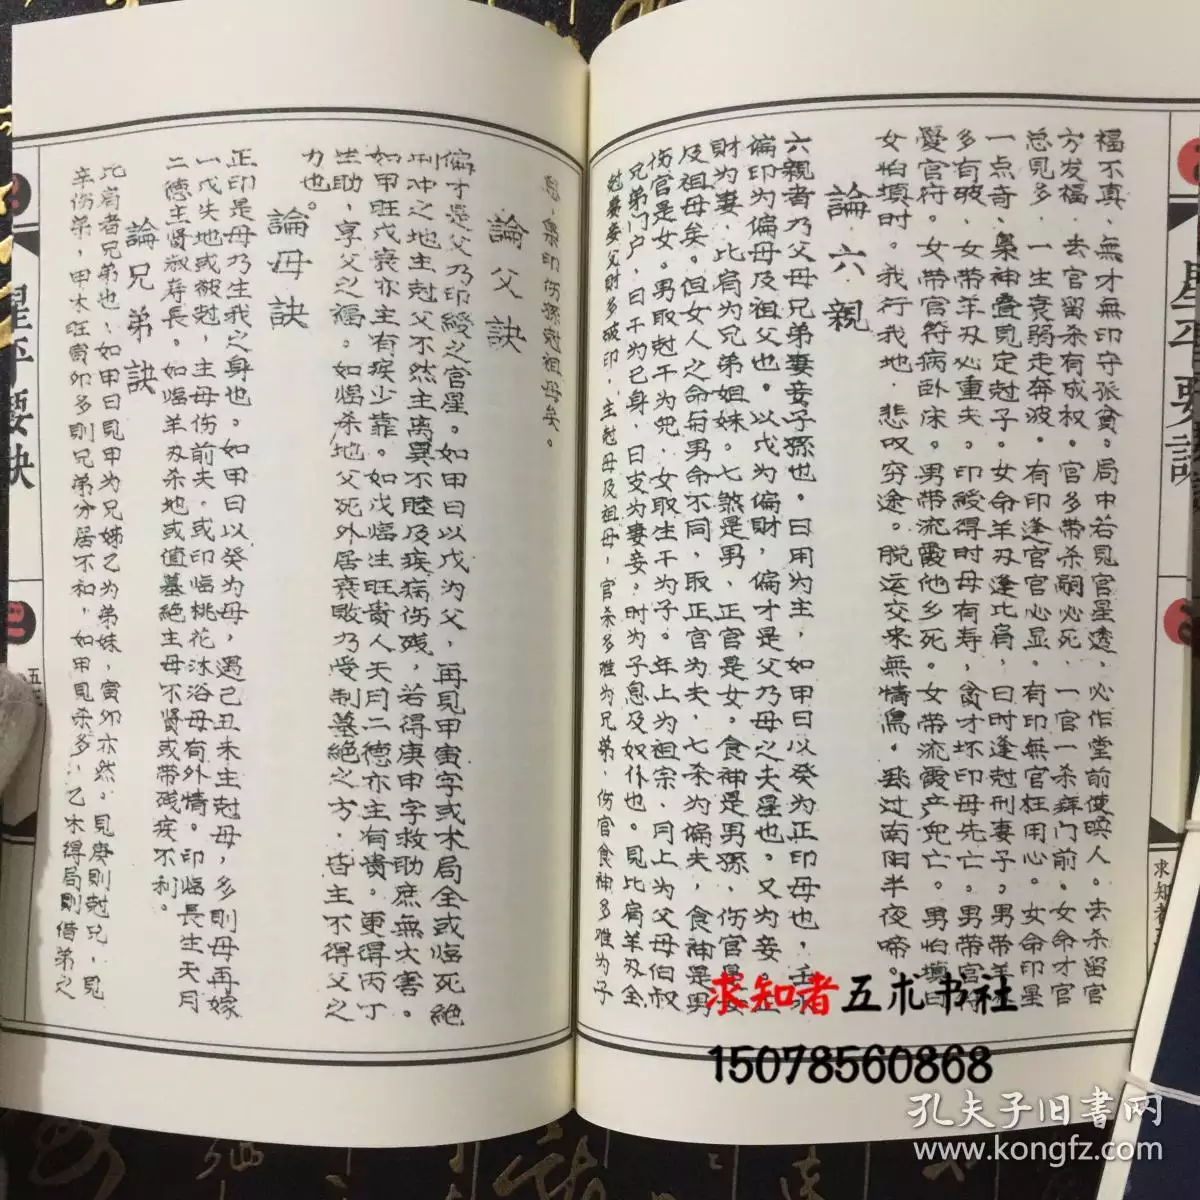 福不真，無才無印守孤貧。局中若見官星透，必作堂前使喚人。去杀留官
方发福，去官留杀有成权。官多带杀嗣必死，一官一杀拜门前。女命才官
总見多，一生衰弱走奔波。有印逢官官必显，有印無官枉用心。女命印星
一点奇，梟神叠見定尅子。女命羊刃逢比肩，日时逢尅刑妻子。男带羊刃
多有破，女带羊刃必重夫。印綬得时母有寿，貪才坏印母先亡。男带官符
憂官府。女带官符病卧床。男带流霞他乡死。女带流霞产死亡。男怕填日
女怕填时。我行我地，悲叹穷途。脱运交来無情鳥。飛过南阳半夜啼。
論六親
六親者乃父母兄弟妻妾子孫也。日用为主，如甲日以癸为正印母也，壬水
偏印为偏母及祖父也。以戊为偏財，偏才是父乃母之夫星也。又为妾。正
財为妻，比肩为兄弟姐妹。七煞是男，正官是女。食神是男孫，伤官是女
及祖母矣。但女人之命与男命不同，取正官为夫，七杀为偏夫，食神是男
伤官是女。男取尅干为兒，女取生干为子。年上为祖宗，月上为父母伯叔
兄弟门户，日干为已身，日支为妻妾，时为子息及奴仆也。見比肩羊刃全
尅妻妾父財多破印，主尅母及祖母，官杀多难为兄弟，伤官食神多难为子
息，梟印伤孫尅祖母矣。
論父訣
偏才是父乃印綬之官星。如甲日以戊为父，再見甲寅字或木局全或临死絕
刑冲之地主尅父不然主离異不睦及疾病伤残，若得庚申字救助庶無大害。
如甲旺戊衰亦主有疾少靠。如戊临生旺貴人天月二德亦主有貴。更得丙丁
生助，享父之福。如临杀地父死外居衰敗乃受制墓絕之方，皆主不得父之
力也。
論母訣
正印是母乃生我之身也。如甲日以癸为母，遇己丑未主尅母，多則母再嫁
一戊失地或被尅，主母伤前夫。或印临桃花沐浴母有外情。印临長生天月
二德主賢淑寿長。如临羊刃杀地或值墓絕主母不賢或带残疾不利。
論兄弟訣
比肩者兄弟也，如甲日見甲为兄姊乙为弟妹，寅卯亦然。見庚則尅兄，見
辛伤弟，甲木旺寅卯多則兄弟分居不和，如甲見杀多，乙木得局則借弟之
星平要訣
求知者五术书社
15078560868
孔夫子旧書网
www.kongfz.com